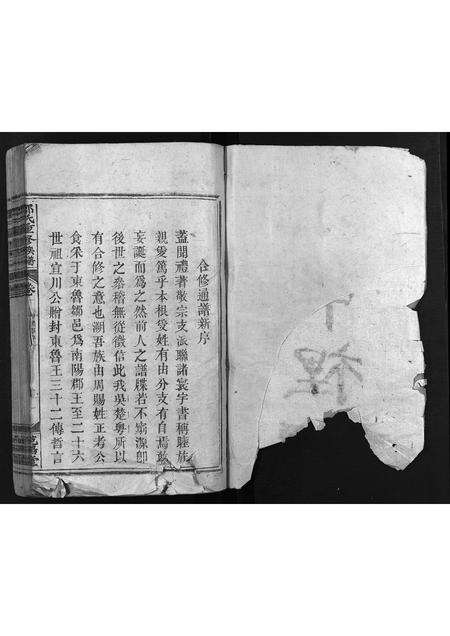 合修通譜新序
蓋聞禮著敬宗支派聯諸寰宇書稱睦族
親愛篤乎本根受姓有由分支有自焉敢
妄誕而為之然前人之譜牒若不
後世之參稽無從徵信此我吳楚粵所以
有合修之意也溯吾族由周賜姓正考公
食采于東魯鄒邑為南陽郡王至二十六
世祖宜川公附封東魯王三十二傳哲言